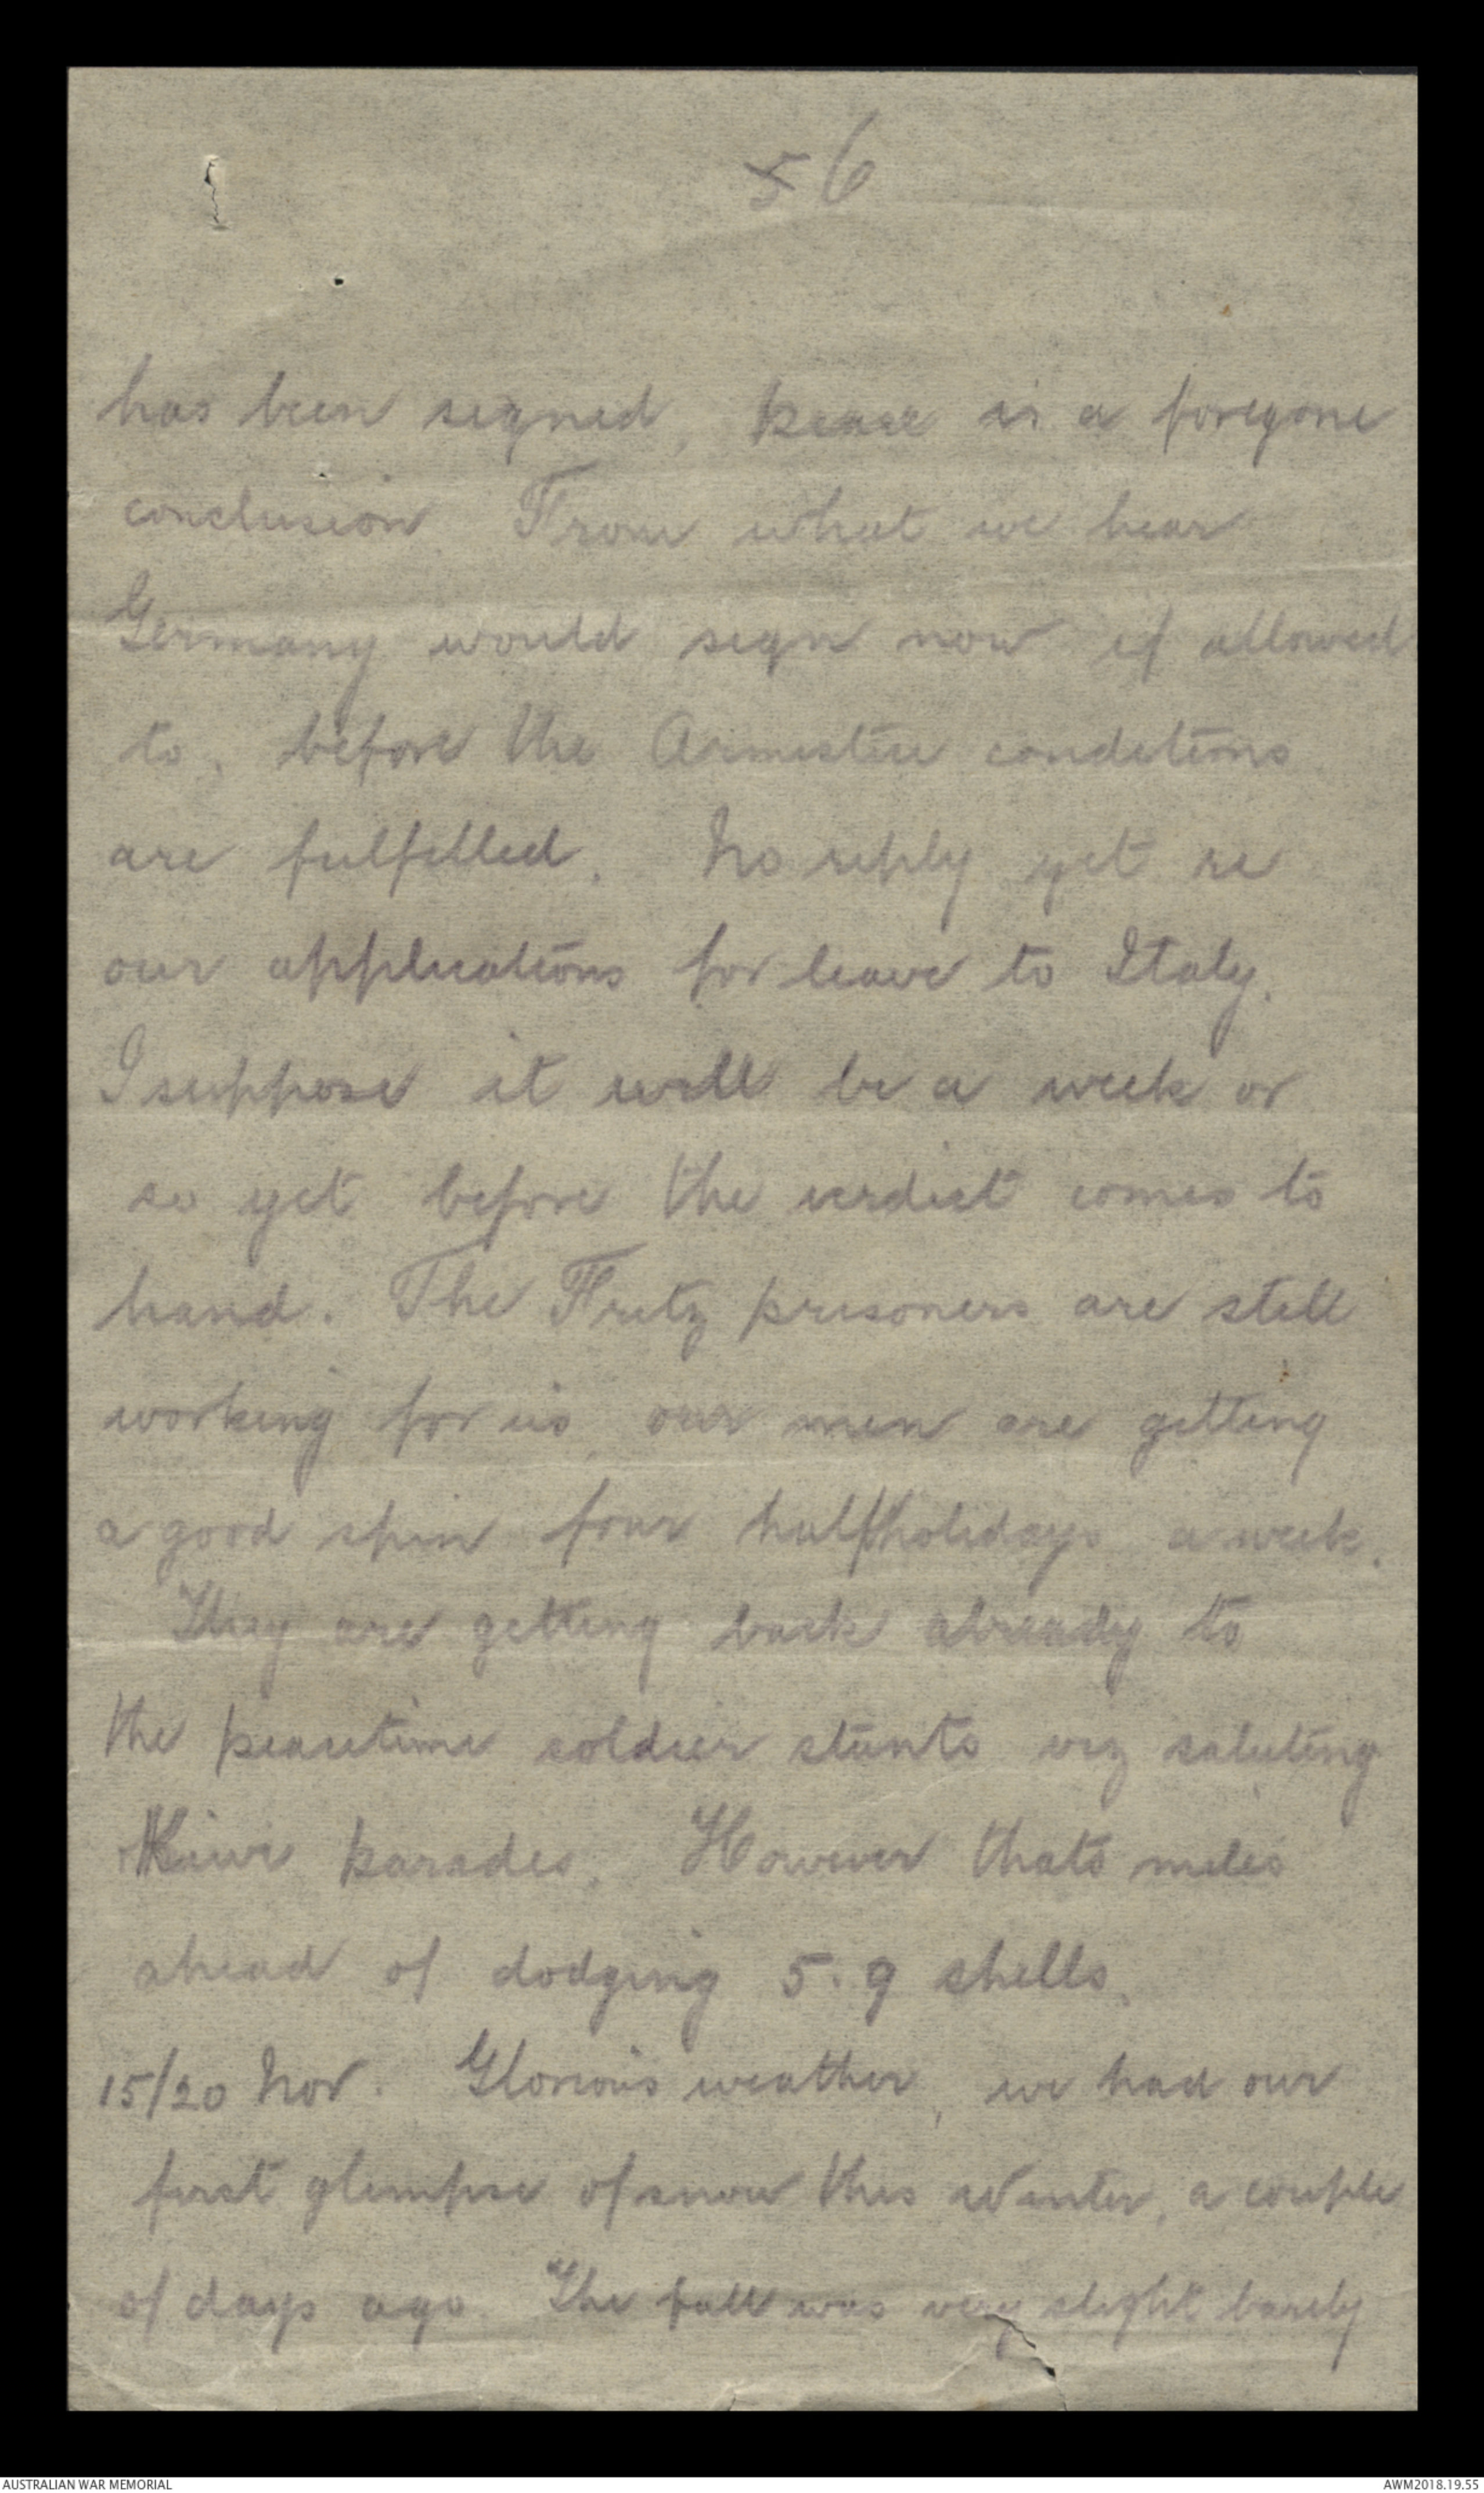 56
has been signed, peace is a foregone
conclusion From what we hear
Germany would sign now if allowed
to, before the Armistice conditions
are fulfilled. No reply yet re
our applications for leave to Italy.
I suppose it will be a week or
so yet before the verdict comes to
hand. The Fritz prisoners are still
working for us, our men are getting
a good spin four half holidays a week.
They are getting back already to
the peacetime soldier stunts viz saluting
Kiwi parades. However thats miles
ahead of dodging 5.9 shells.
15/20 Nov. Glorious weather, we had our
first glimpse of snow this Winter, a couple
of days ago The fall was very slight barely
AUSTRALIAN WAR MEMORIAL
AWM2018.19.55